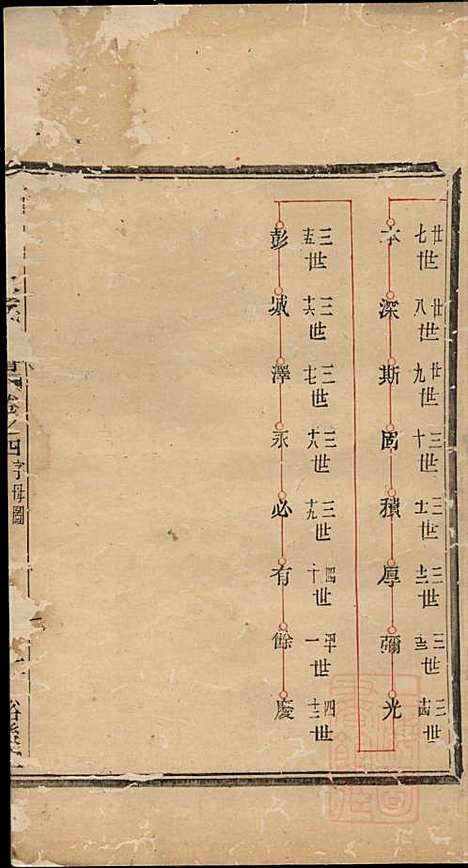 廿七世 廿八世 廿九世 三十世 三十一世 三十二世 三十三世 三十四世
本深斯固積厚彌光
三十五世 三十六世 三十七世 三十八世 三十九世 四十世 四十一世 四十二世
彭城澤永必有餘慶
卷之四 字母圖